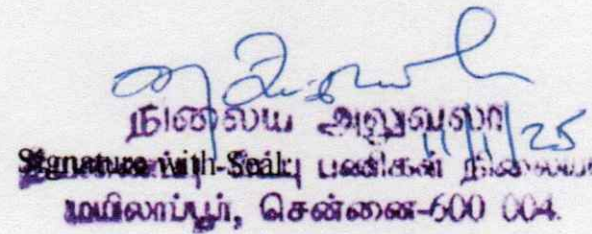 நிலைய அலுவலர்
11/1/25
Signature with Seal: பணிகள் நிலைய
மயிலாப்பூர், சென்னை-600 004.